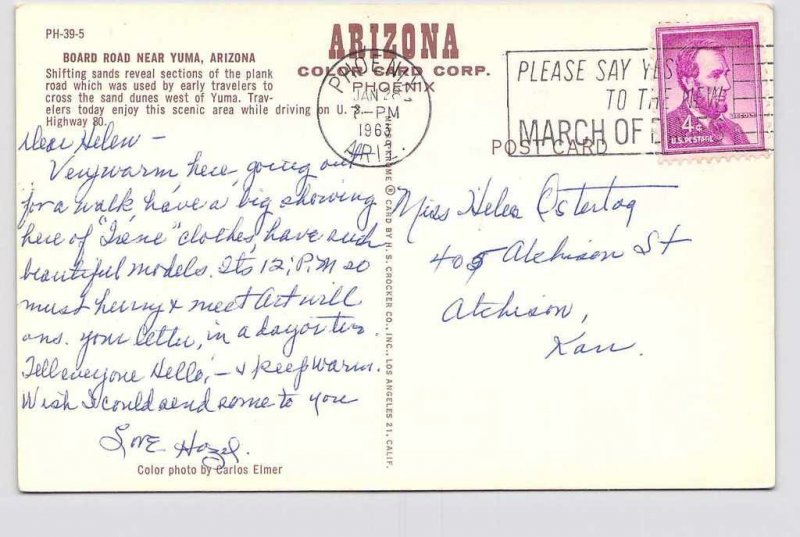 PH-39-5
BOARD ROAD NEAR YUMA, ARIZONA
Shifting sands reveal sections of the plank
road which was used by early travelers to
cross the sand dunes west of Yuma. Trav-
elers today enjoy this scenic area while driving on U. S.
Highway 80.
Dear Helen -
Very warm here, going out
for a walk have a big showing
here of "Irene" clothes, have such
beautiful models. Its 12; P.M so
must hurry & meet Art will
ans. your letter, in a day or two.
Tell everyone Hello, - & keep warm.
Wish I could send some to you
Love Hazel.
Color photo by Carlos Elmer
ARIZONA
COLOR CARD CORP.
PHOENIX
PHOENIX
JAN
PM
1963
ARIZ.
PLEASE SAY YES
TO THE NEW
MARCH OF
4¢
U.S. POSTAGE
POST CARD
CARD BY H. S. CROCKER CO., INC., LOS ANGELES 21, CALIF.
Miss Helen Ostertag
405 Atchison St
Atchison,
Kan.